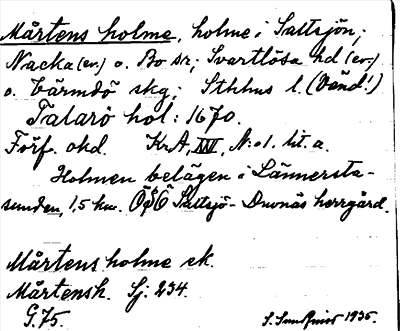 Mårtens holme, holme i Saltsjön;
Nacka (ev.) o. Bo sr, Svartlösa hd (ev.)
o. Värmdö skg; Sthlms l. (Vänd!)
Talarö hol: 1670.
Förf. okd. KrA, XIV, N:o 1. lit. a.
Holmen belägen i Lännersta-
sunden, 1,5 km. ÖSÖ Saltsjö-Duvnäs herrgård.
Mårtens holme ek.
Mårtensh. Sj: 234.
G. 75. S. Sundqvist 1935.